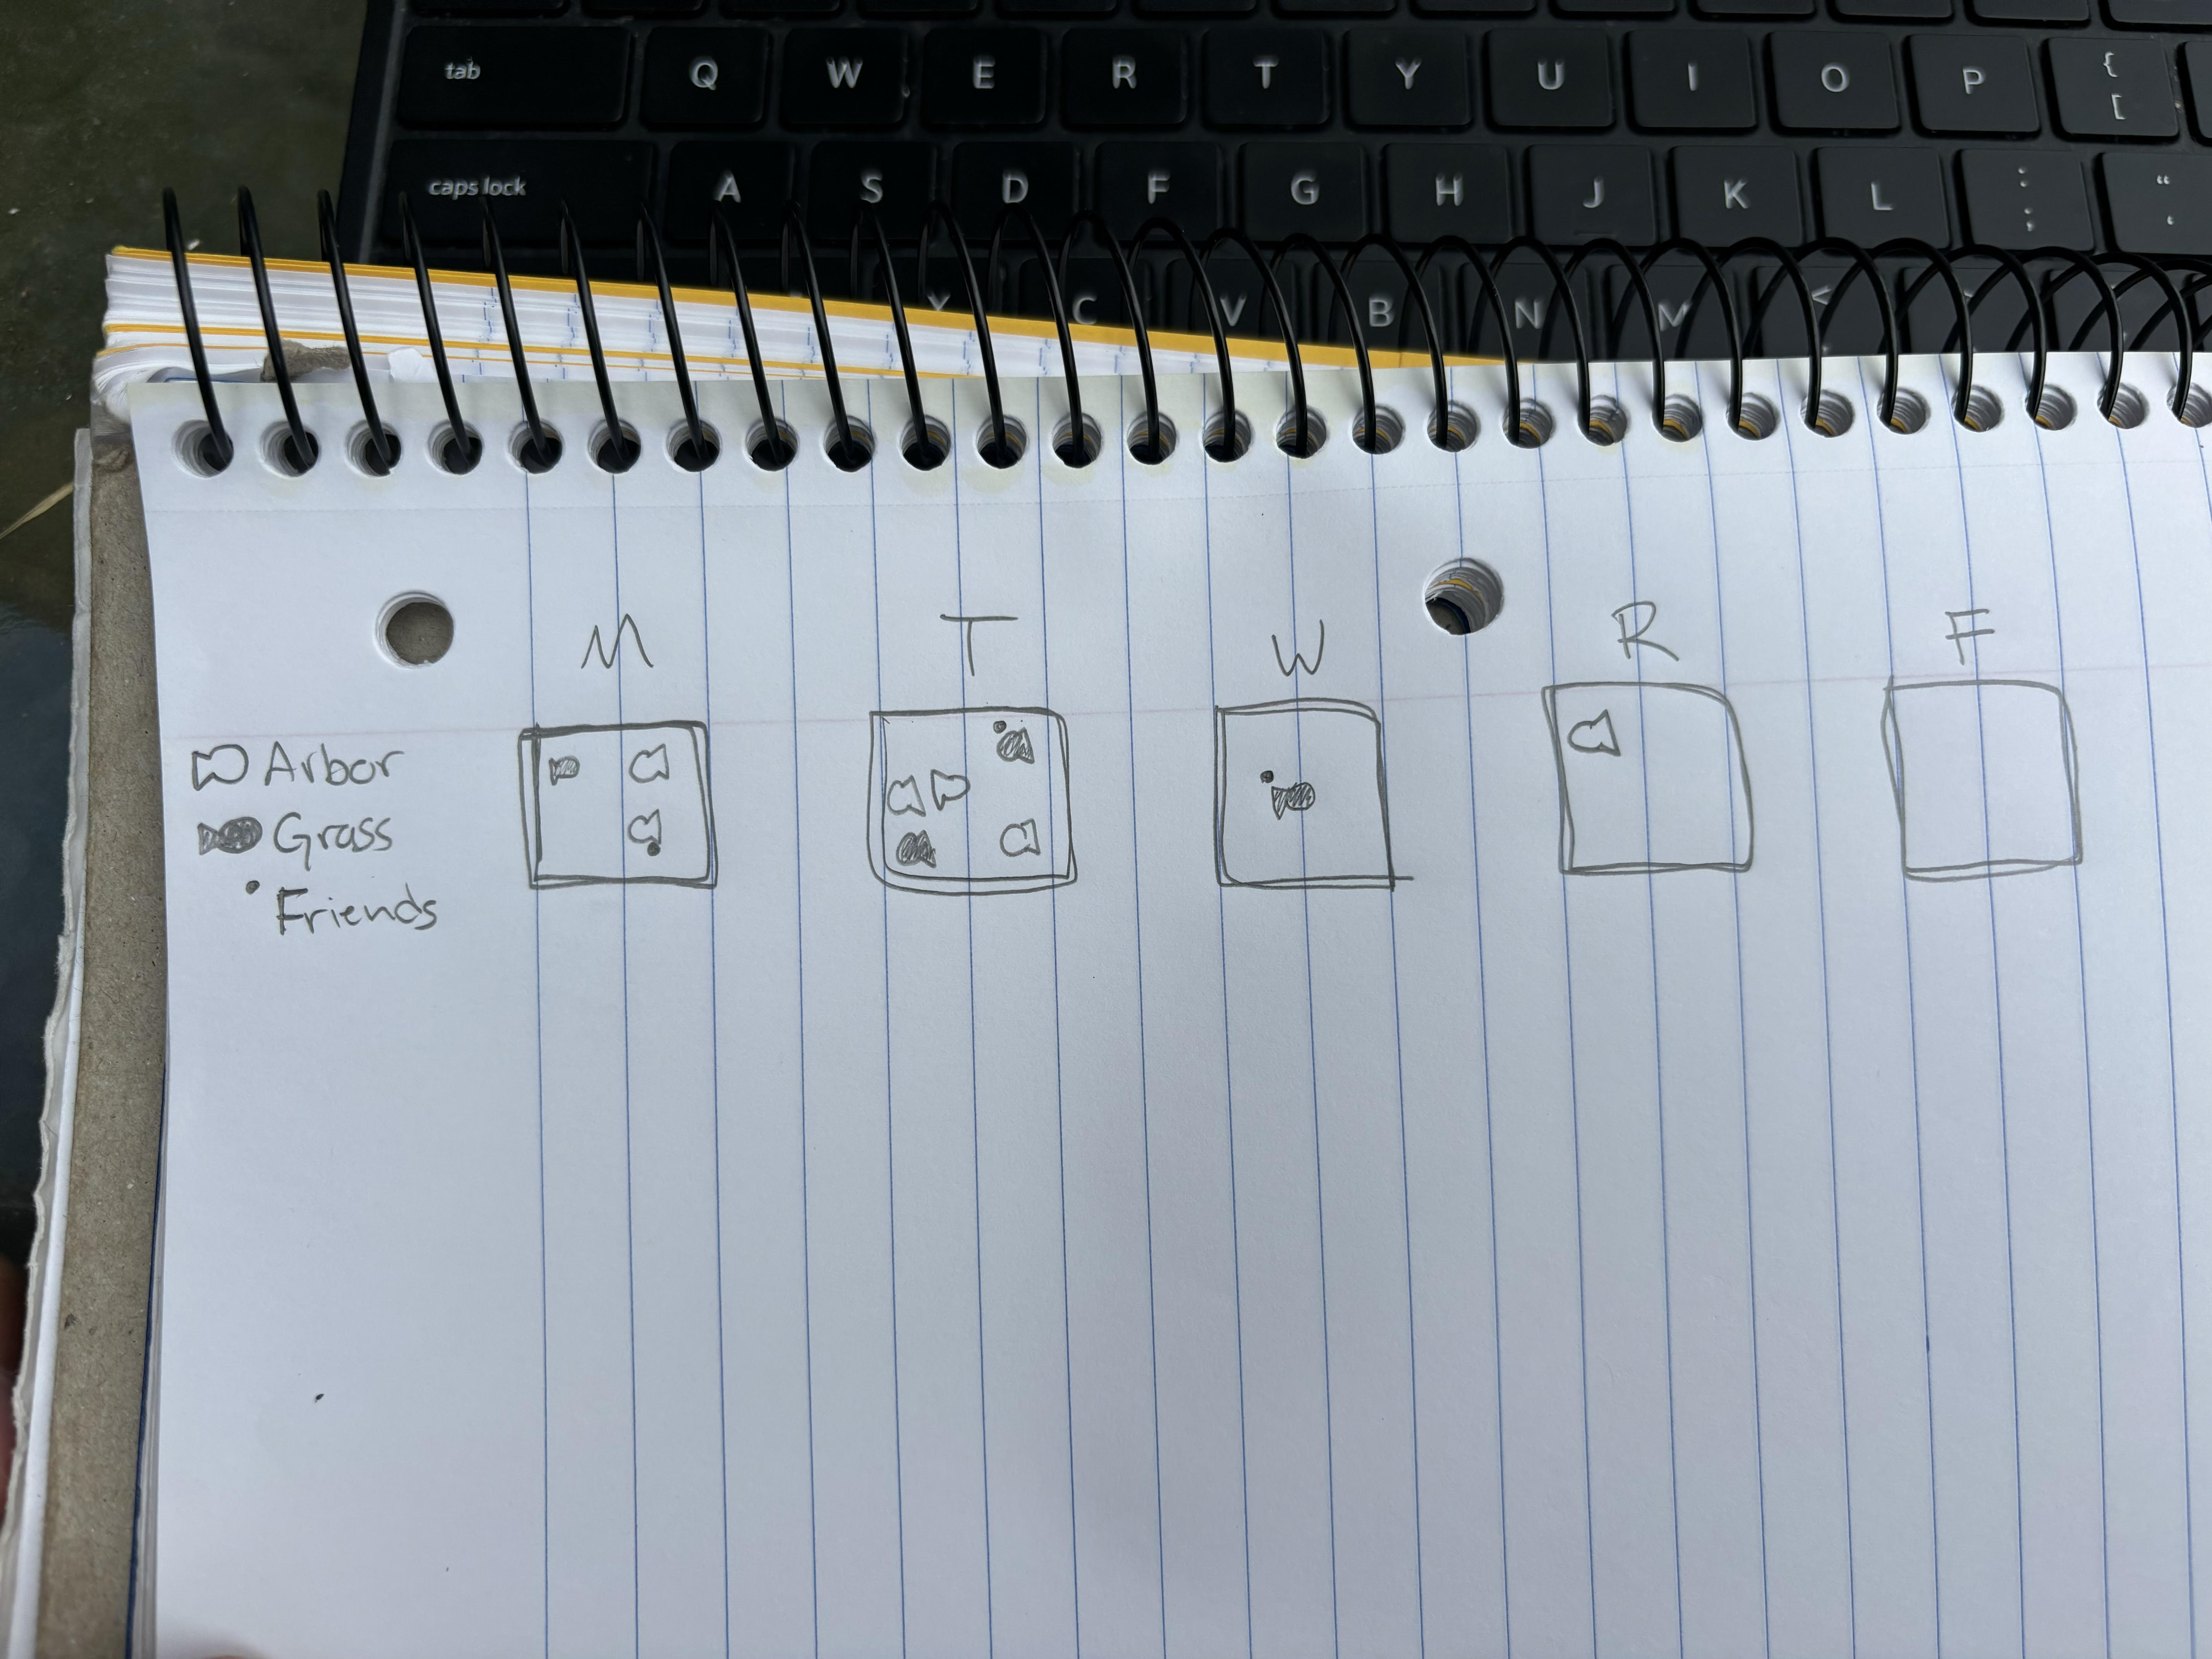 tab Q W E R T Y U I O P { [
caps lock A S D F G H J K L : ; “ ‘
C V B N M <
M T W R F
Arbor
Grass
Friends